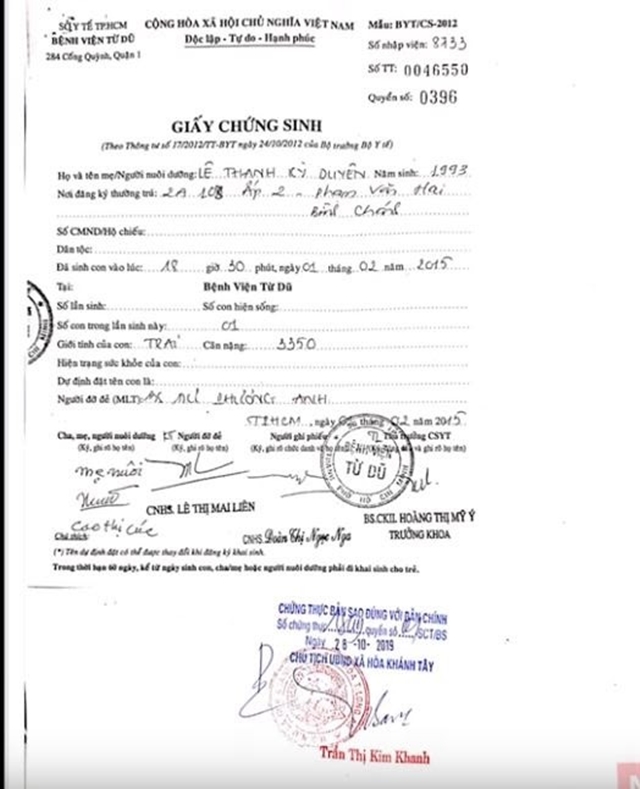 SỞ Y TẾ TP.HCM
BỆNH VIỆN TỪ DŨ
284 Cống Quỳnh, Quận 1
CỘNG HÒA XÃ HỘI CHỦ NGHĨA VIỆT NAM
Độc lập - Tự do - Hạnh phúc
Mẫu: BYT/CS-2012
Số nhập viện: 8733
Số TT: 0046550
Quyển số: 0396
GIẤY CHỨNG SINH
(Theo Thông tư số 17/2012/TT-BYT ngày 24/10/2012 của Bộ trưởng Bộ Y tế)
Họ và tên mẹ/Người nuôi dưỡng: LÊ THANH KỲ DUYÊN Năm sinh: 1993
Nơi đăng ký thường trú: 2A 108 Ấp 2 - Phạm Văn Hai
Bình Chánh
Số CMND/Hộ chiếu:
Dân tộc:
Đã sinh con vào lúc: 18 giờ 30 phút, ngày 01 tháng 02 năm 2015
Tại: Bệnh Viện Từ Dũ
Số lần sinh: Số con hiện sống:
Số con trong lần sinh này: 01
Giới tính của con: TRAI Cân nặng: 3350
Hiện trạng sức khỏe của con:
Dự định đặt tên con là:
Người đỡ đẻ (MLT): PHƯƠNG ANH
TPHCM, ngày tháng 02 năm 2015
Cha, mẹ, người nuôi dưỡng Người đỡ đẻ Người ghi phiếu Thủ trưởng CSYT
(Ký, ghi rõ họ tên) (Ký, ghi rõ họ tên) (Ký, ghi rõ chức danh (Ký, ghi rõ họ tên)
BỆNH VIỆN
TỪ DŨ
mẹ nuôi
CNHS. LÊ THỊ MAI LIÊN
BS.CKII. HOÀNG THỊ MỸ Ý
Cao Thị Cúc
CNHS. Đoàn Thị Ngọc Nga
TRƯỞNG KHOA
Ghi chú:
(*) Tên dự định đặt có thể được thay đổi khi đăng ký khai sinh.
Trong thời hạn 60 ngày, kể từ ngày sinh con, cha/mẹ hoặc người nuôi dưỡng phải đi khai sinh cho trẻ.
CHỨNG THỰC BẢN SAO ĐÚNG VỚI BẢN CHÍNH
Số chứng thực quyển số SCT/BS
Ngày 28-10-2019
CHỦ TỊCH UBND XÃ HÒA KHÁNH TÂY
Trần Thị Kim Khanh